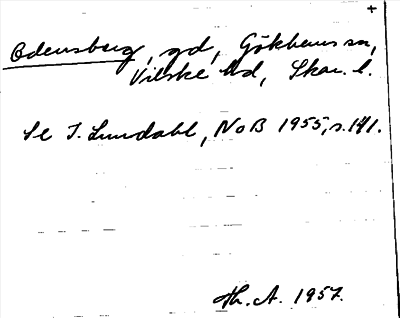 +
Odensberg, gd, Gökhems sn,
Vilske hd, Skar. l.
Se I. Lundahl, NoB 1955, s. 141.
Th. A. 1957.